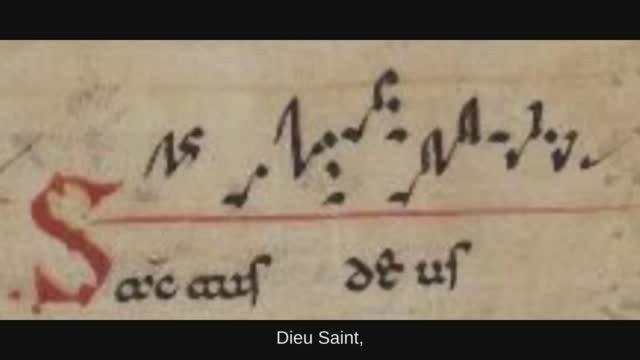 Sāc tus de us
Dieu Saint,